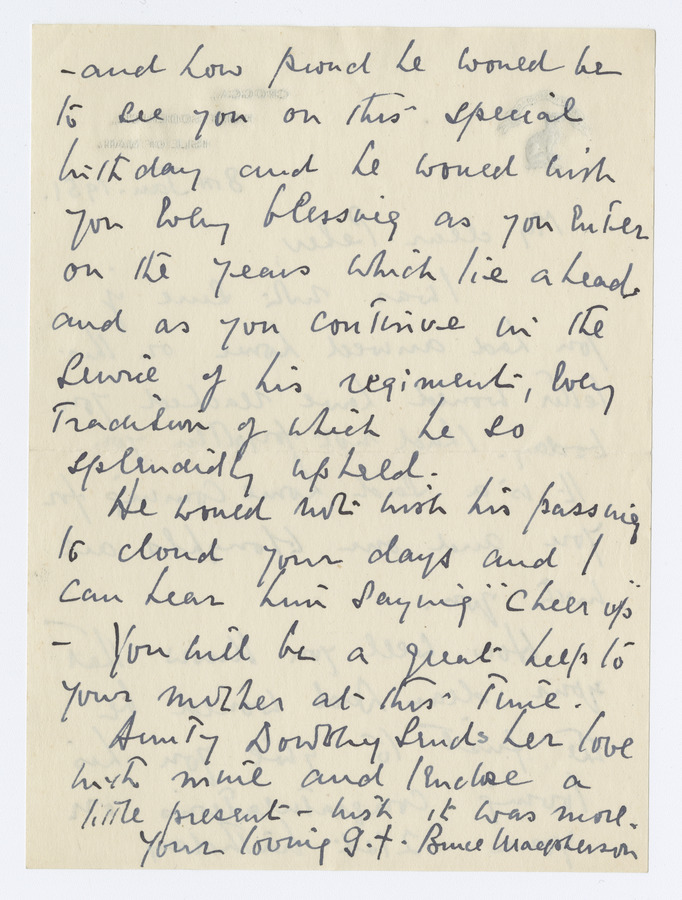 - and how proud he would be
to see you on this special
birthday and he would wish
you every blessing as you enter
on the years which lie ahead
and as you continue in the
service of his regiment, every
tradition of which he so
splendidly upheld.
He would not wish his passing
to cloud your days and I
can hear him saying "Cheer up"
- You will be a great help to
your mother at this time.
Aunty Dorothy sends her love
with mine and I enclose a
little present - wish it was more.
Your loving g.f. Bruce Macpherson